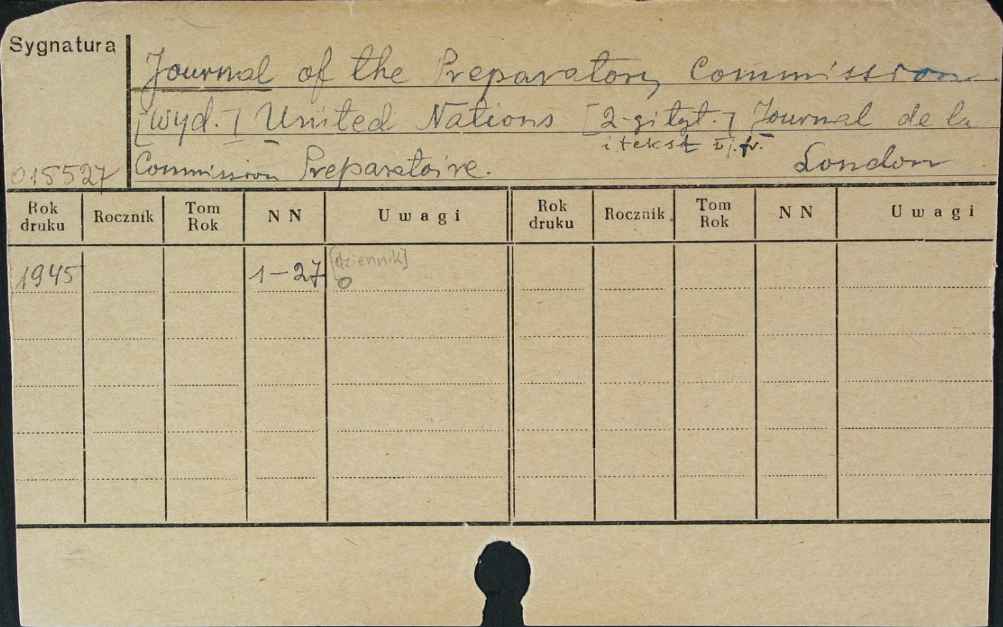 Sygnatura
Journal of the Preparatory Commission
[Wyd.] United Nations [2-gi tyt.] Journal de la
i tekst j. fr.
015527 Commission Preparatoire. London
Rok druku Rocznik Tom Rok N N Uwagi Rok druku Rocznik Tom Rok N N Uwagi
1945 1-27 [dziennik]